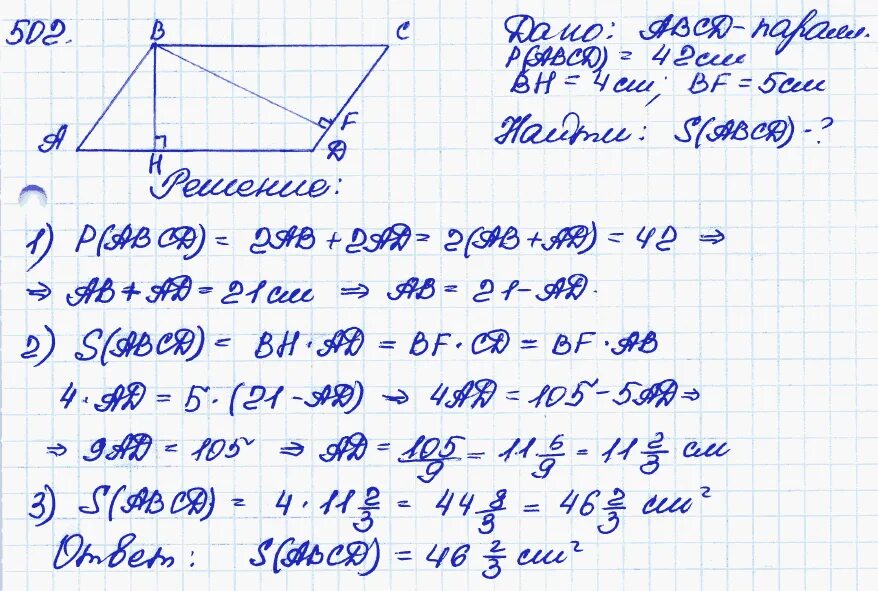 502.
B C
A H D F
Дано: ABCD - паралл.
P(ABCD) = 42 см
BH = 4 см; BF = 5 см
Найти: S(ABCD) - ?
Решение:
1) P(ABCD) = 2AB + 2AD = 2(AB + AD) = 42 ⇒
⇒ AB + AD = 21 см ⇒ AB = 21 - AD.
2) S(ABCD) = BH · AD = BF · CD = BF · AB
4 · AD = 5 · (21 - AD) ⇒ 4AD = 105 - 5AD ⇒
⇒ 9AD = 105 ⇒ AD = 105/9 = 11 6/9 = 11 2/3 см
3) S(ABCD) = 4 · 11 2/3 = 44 8/3 = 46 2/3 см²
Ответ: S(ABCD) = 46 2/3 см²